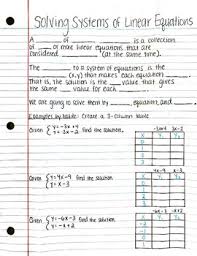 Solving Systems of Linear Equations
A ___ of ___ ___ is a collection
of ___ or more linear equations that are
considered ___ (at the same time).
The ___ to a system of equations is the
(x,y) that makes each equation ___.
That is, the solution is the ___ value that gives the
same ___ value for each ___.
We are going to solve them by ___, equation, and ___.
Examples by table: Create a 3-Column Table
Given { y=-3x+4 find the solution.
y=x-3
X Y₁ Y₂
4x-9 x-3
Given { y=4x-9 find the solution
y=x-3
X Y₁ Y₂
-6x-3 -x+2
Given { y=-6x-3 find the solution.
y=-x+2
X Y₁ Y₂